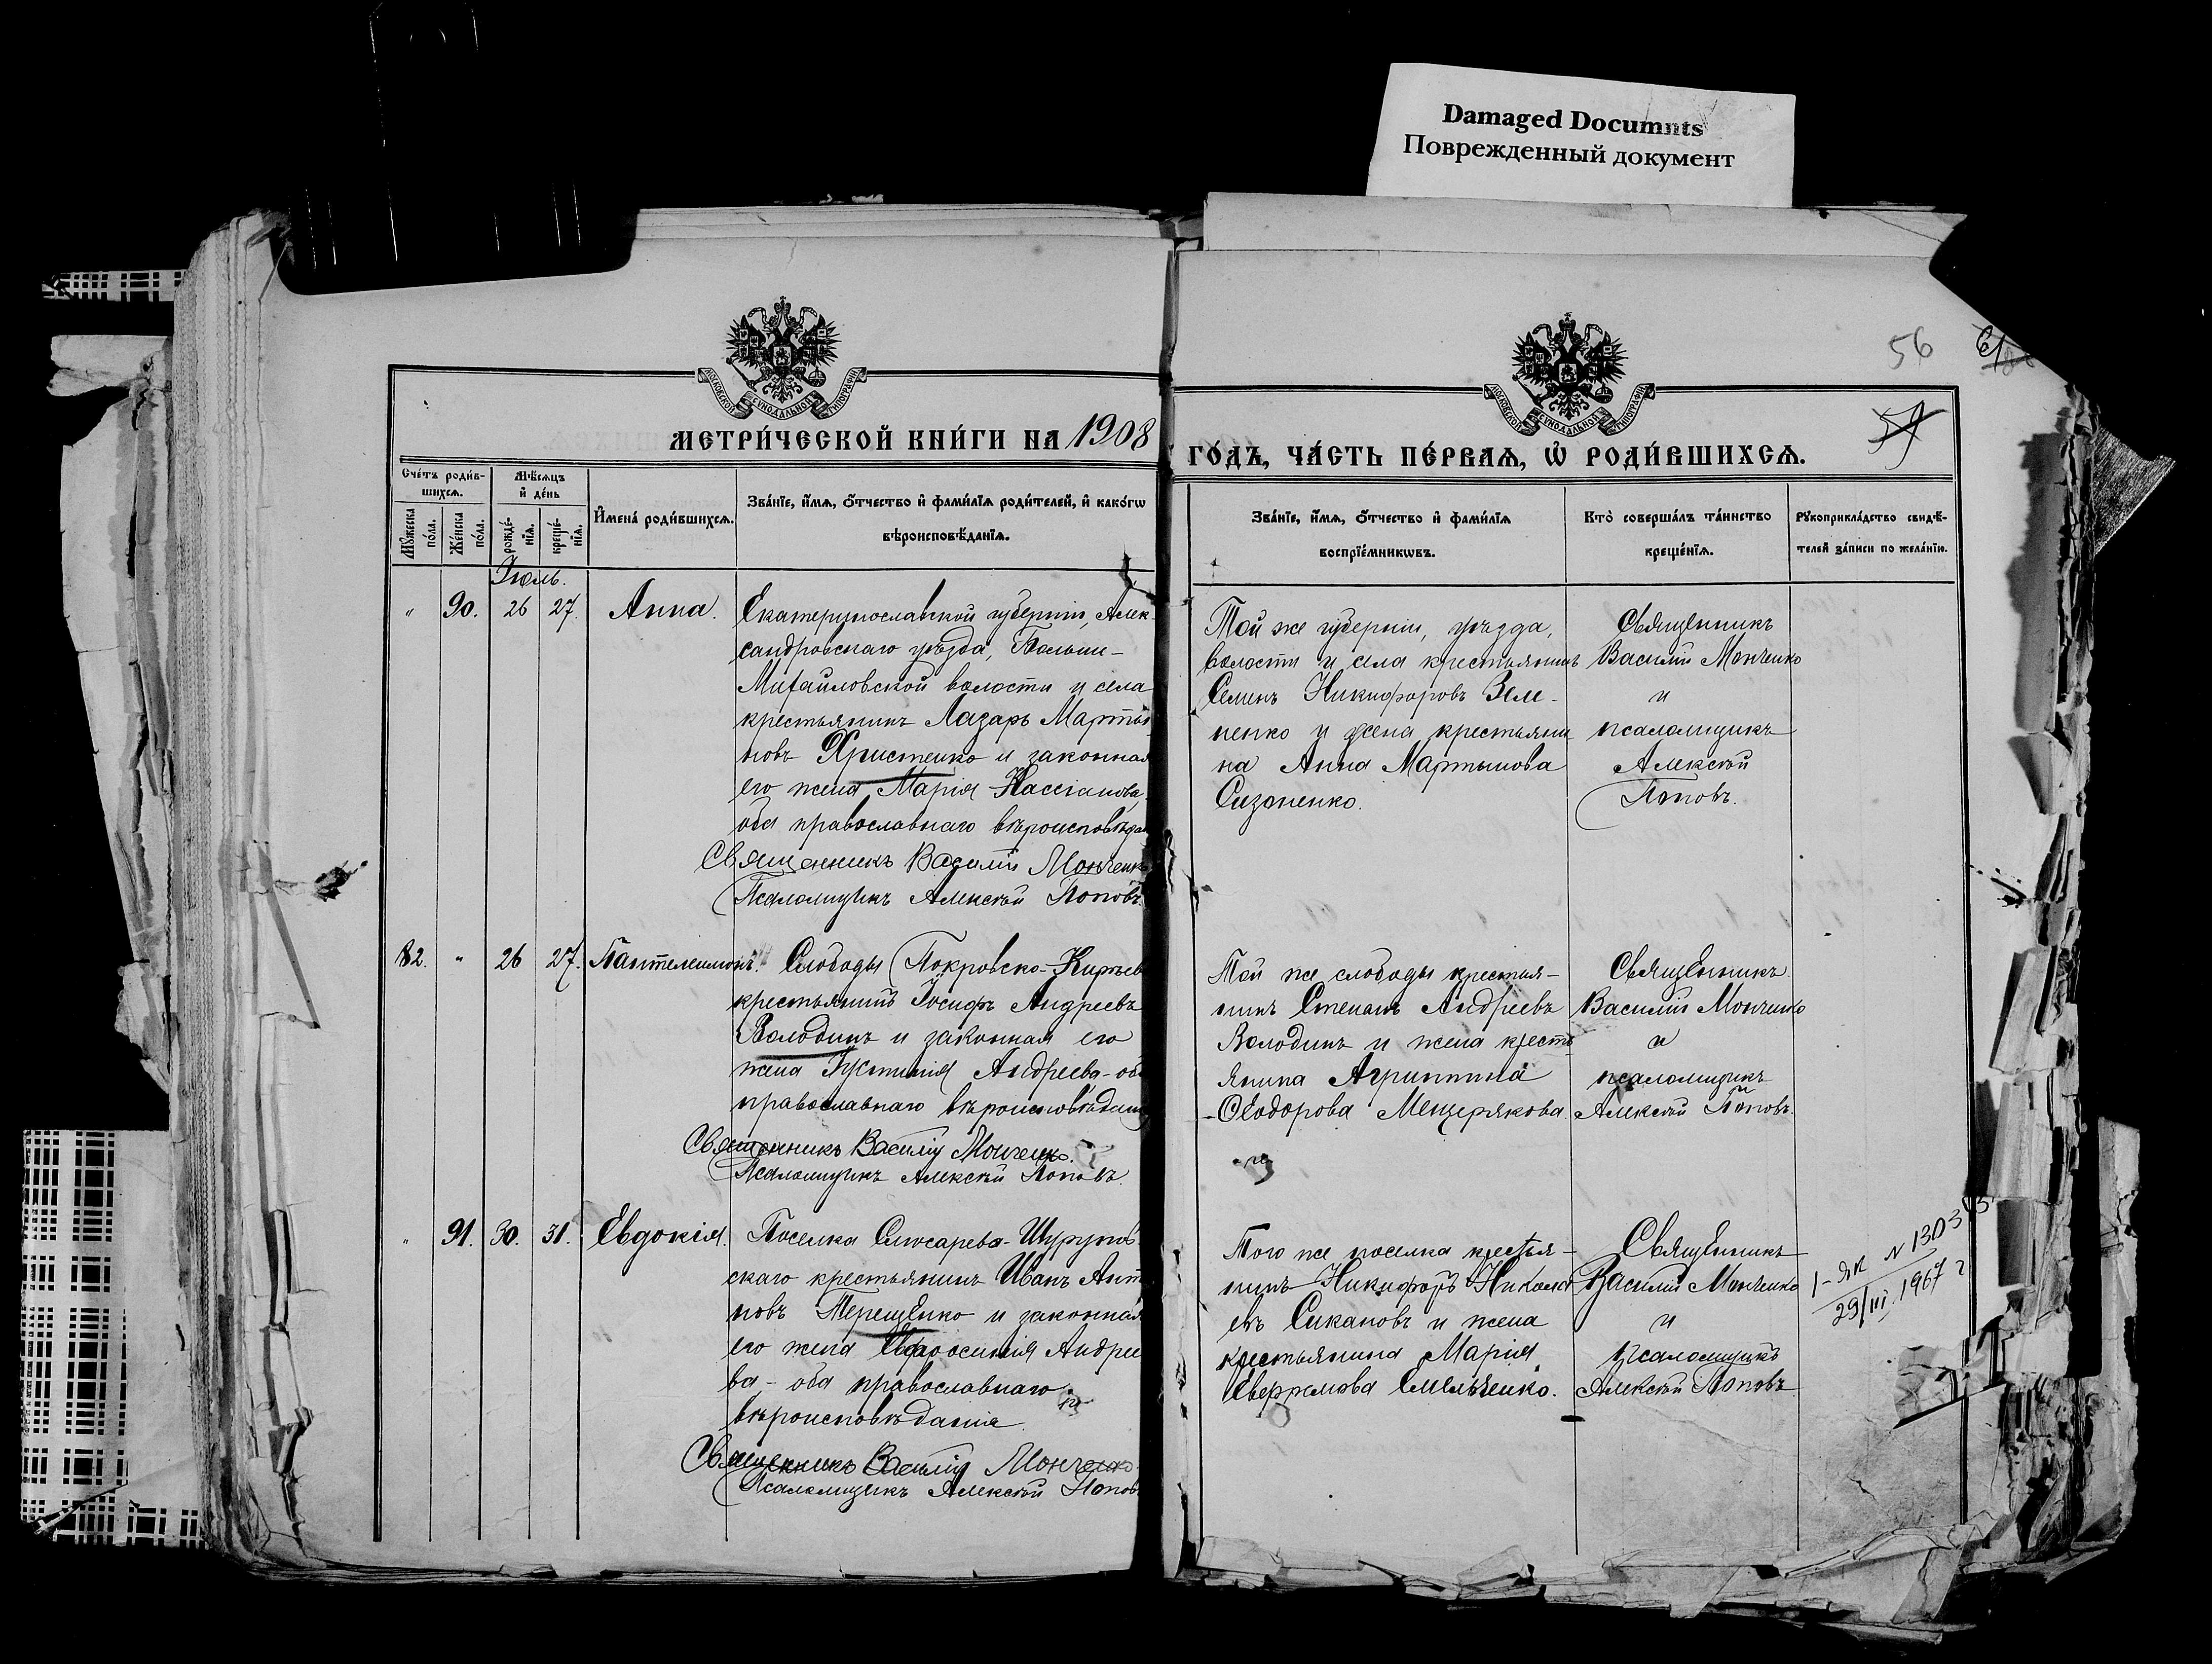 Damaged Documnts
Поврежденный документ
56
МОСКОВСКОЙ СУНОДАЛЬНОЙ ТИПОГРАФІИ
МОСКОВСКОЙ СУНОДАЛЬНОЙ ТИПОГРАФІИ
МЕТРИ́ЧЕСКОЙ КНИ́ГИ НА 1908
ГО́ДЪ, ЧА́СТЬ ПЕ́РВАѦ, Ѡ҆ РОДИ́ВШИХСѦ.
Сче́тъ роди́в-
шихсѧ.
Мꙋжеска по́ла.
Же́нска по́ла.
Мѣ́сѧцъ
и҆ де́нь
рожде́-
нїѧ.
креще́-
нїѧ.
И҆мена̀ роди́вшихсѧ.
Зва́нїе, и҆́мѧ, ѻ҆́тчество и҆ фами́лїѧ роди́телей, и҆ како́гѡ
вѣроисповѣ́данїѧ.
Зва́нїе, и҆́мѧ, ѻ҆́тчество и҆ фами́лїѧ
воспрїе́мникѡвъ.
Кто̀ соверша́лъ та́инство
креще́нїѧ.
Рꙋкоприкла́дство свидѣ́-
телей за́писи по жела́нїю.
Іюль.
" 90. 26 27. Анна.
Екатеринославской губерніи, Алек-
сандровскаго уѣзда, Больше-
Михайловской волости и села
крестьянинъ Лазарь Марты-
новъ Христенко и законная
его жена Марія Кассіанова,
оба православнаго вѣроисповѣдан
Священникъ Василій Монченко
Псаломщикъ Алексѣй Поповъ.
Той же губерніи, уѣзда,
волости и села крестьянинъ
Семенъ Никифоровъ Зеле-
ненко и жена крестьяни
на Анна Мартынова
Сизоненко.
Священникъ
Василій Монченко
и
псаломщикъ
Алексѣй
Поповъ.
82. " 26 27. Пантелеимонъ.
Слободы Покровско-Кирѣев
крестьянинъ Іосифъ Андреевъ
Володинъ и законная его
жена Іустинія Андреева - оба
православнаго вѣроисповѣдані
Священникъ Василій Монченко.
Псаломщикъ Алексѣй Поповъ.
Той же слободы крестья-
нинъ Степанъ Андреевъ
Володинъ и жена кресть
янина Агриппина
Ѳеодорова Мещерякова.
Священникъ
Василій Монченко
и
псаломщикъ
Алексѣй Поповъ.
" 91. 30. 31. Евдокія.
Поселка Слюсарево-Шурупов
скаго крестьянинъ Иванъ Анто
новъ Терещенко и законная
его жена Евфросинія Андрее
ва - оба православнаго
вѣроисповѣданія.
Священникъ Василій Монченко.
Псаломщикъ Алексѣй Попов
Того же поселка крестья-
нинъ Никифоръ Николa
евъ Сикановъ и жена
крестьянина Марія
Смельченко.
Священникъ
Василій Монченко
и
псаломщикъ
Алексѣй Поповъ
29/III 1967 г